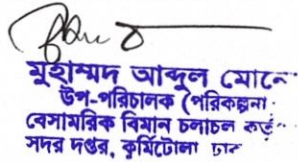 মুহাম্মদ আব্দুল মোনে
উপ-পরিচালক (পরিকল্পনা
বেসামরিক বিমান চলাচল কর্তৃ
সদর দপ্তর, কুর্মিটোলা ঢাক